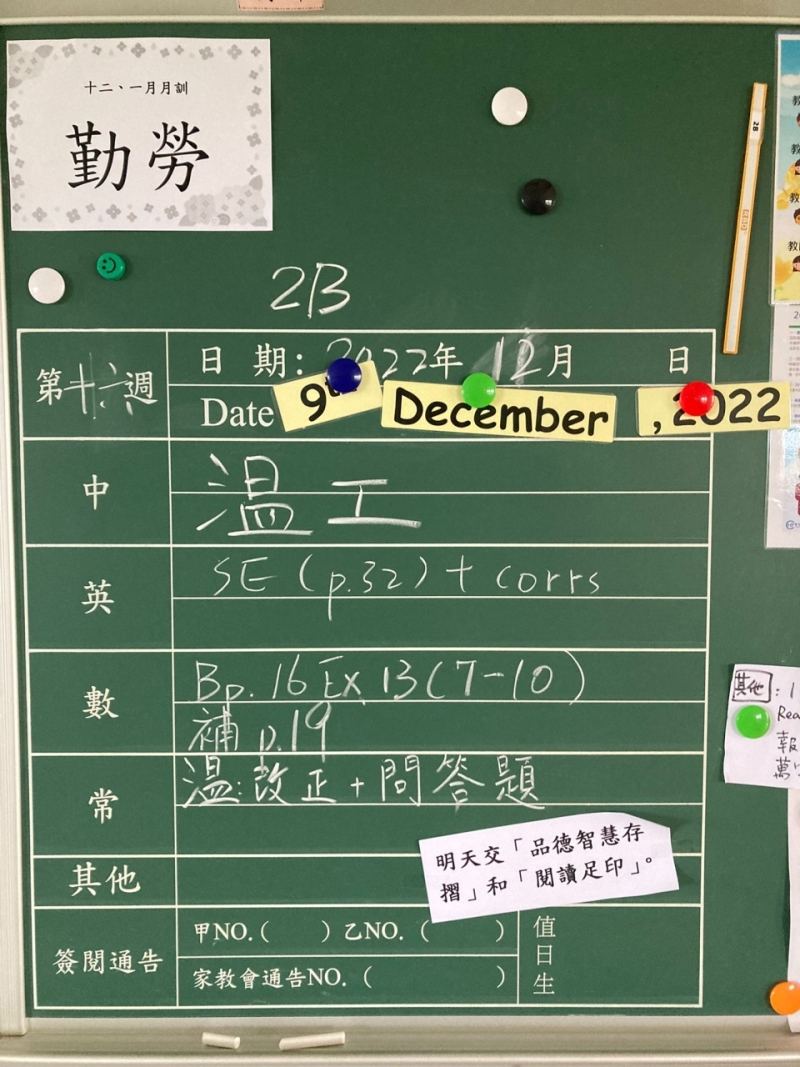 十二、一月月訓
勤勞
2B
2B
第十六週
日 期：2022年 12月 日
Date 9th December , 2022
中
温工
英
SE (p.32) + corrs
數
Bp.16 Ex 13 (7-10)
補 p.19
常
溫:改正+問答題
其他
明天交「品德智慧存
摺」和「閱讀足印」。
簽閱通告
甲NO.( ) 乙NO. ( )
家教會通告NO. ( )
值日生
其他：1
Rea
報
萬